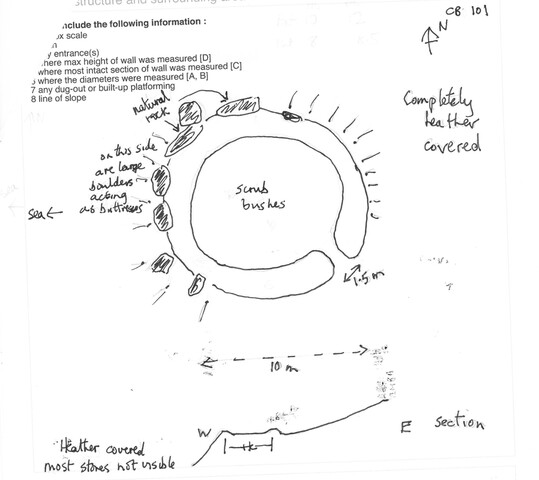 structure and surrounding area
CB 101
nclude the following information :
ox scale
n
y entrance(s)
here max height of wall was measured [D]
where most intact section of wall was measured [C]
where the diameters were measured [A, B]
7 any dug-out or built-up platforming
8 line of slope
N
Completely
heather
covered
natural
rock
on this side
are large
boulders
acting
as buttresses
sea
scrub
bushes
1.5 m
10 m
W
E section
Heather covered
most stones not visible